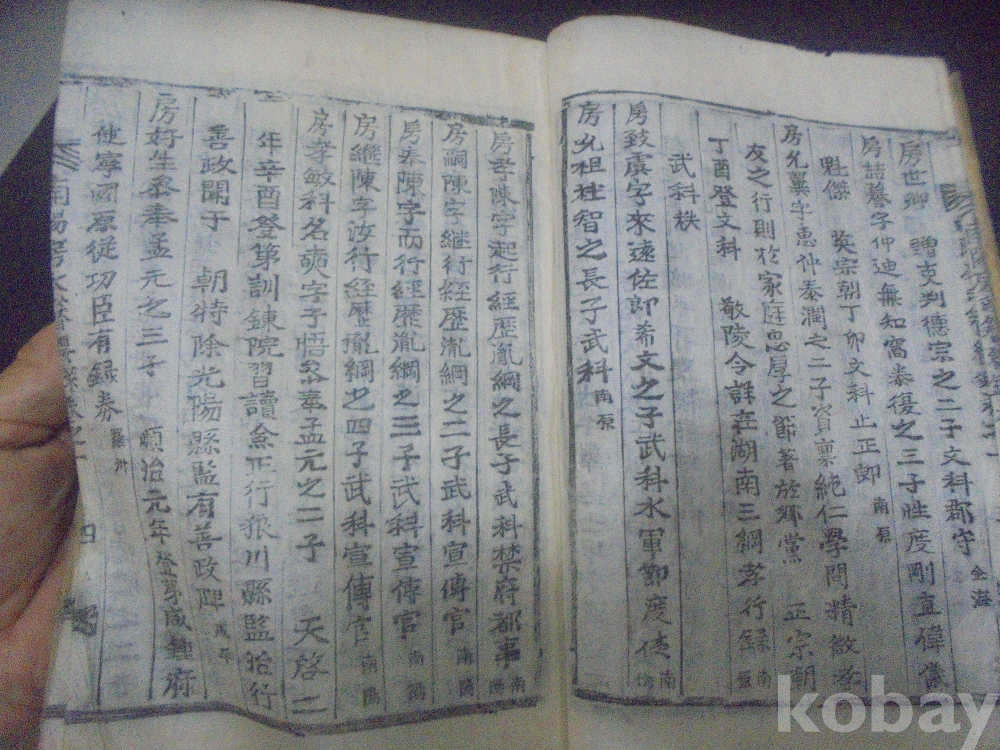 房世卿 贈吏判德宗之二子文科郡守 金海
房喆蓍字仲迪無知窩泰復之三子性度剛直偉儀
魁傑 英宗朝丁卯文科止正郎 南原
房允翼字惠仲泰潤之二子資稟純仁學問精微孝
友之行則於家庭忠厚之節著於鄉黨 正宗朝
丁酉登文科 敬陵令詳在湖南三綱孝行錄 南原
武科秩
房致虞字來遠佐郎希文之子武科水軍節度使 南陽
房允祖性智之長子武科 南原
房孝陳字起行經歷胤綱之長子武科禁府都事 南陽
房嗣陳字継行經歷胤綱之二子武科宣傳官 南陽
房泰陳字而行經歷胤綱之三子武科宣傳官 南陽
房継陳字汝行經歷胤綱之四子武科宣傳官 南陽
房孝敏科名奭字子悟叅奉孟元之二子 天啓二
年辛酉登第訓鍊院習讀僉正行狼川縣監治行
善政聞于 朝特除光陽縣監有善政碑 咸平
房好生叅奉孟元之三子 順治元年登茅咸鍾府
使寧國原從功臣有錄券 羅州
四
kobay